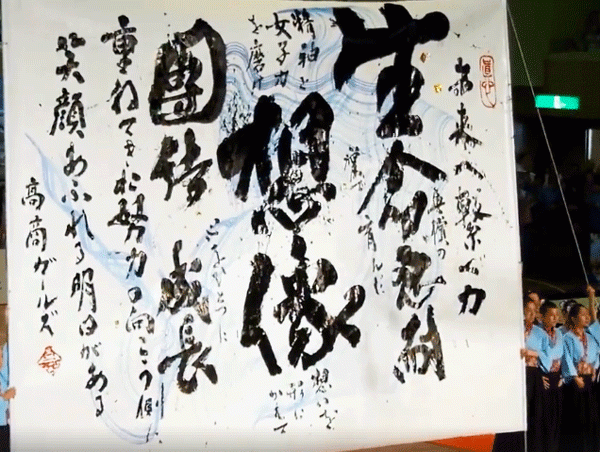 未来へ繋ぐ力
生命
育んだ
精神と
女子力
を磨け
想像
想いを
形に
かえて
こころひとつに
團結 成長
重ねてきた努力の向こう側に
笑顔あふれる明日がある
高商ガールズ